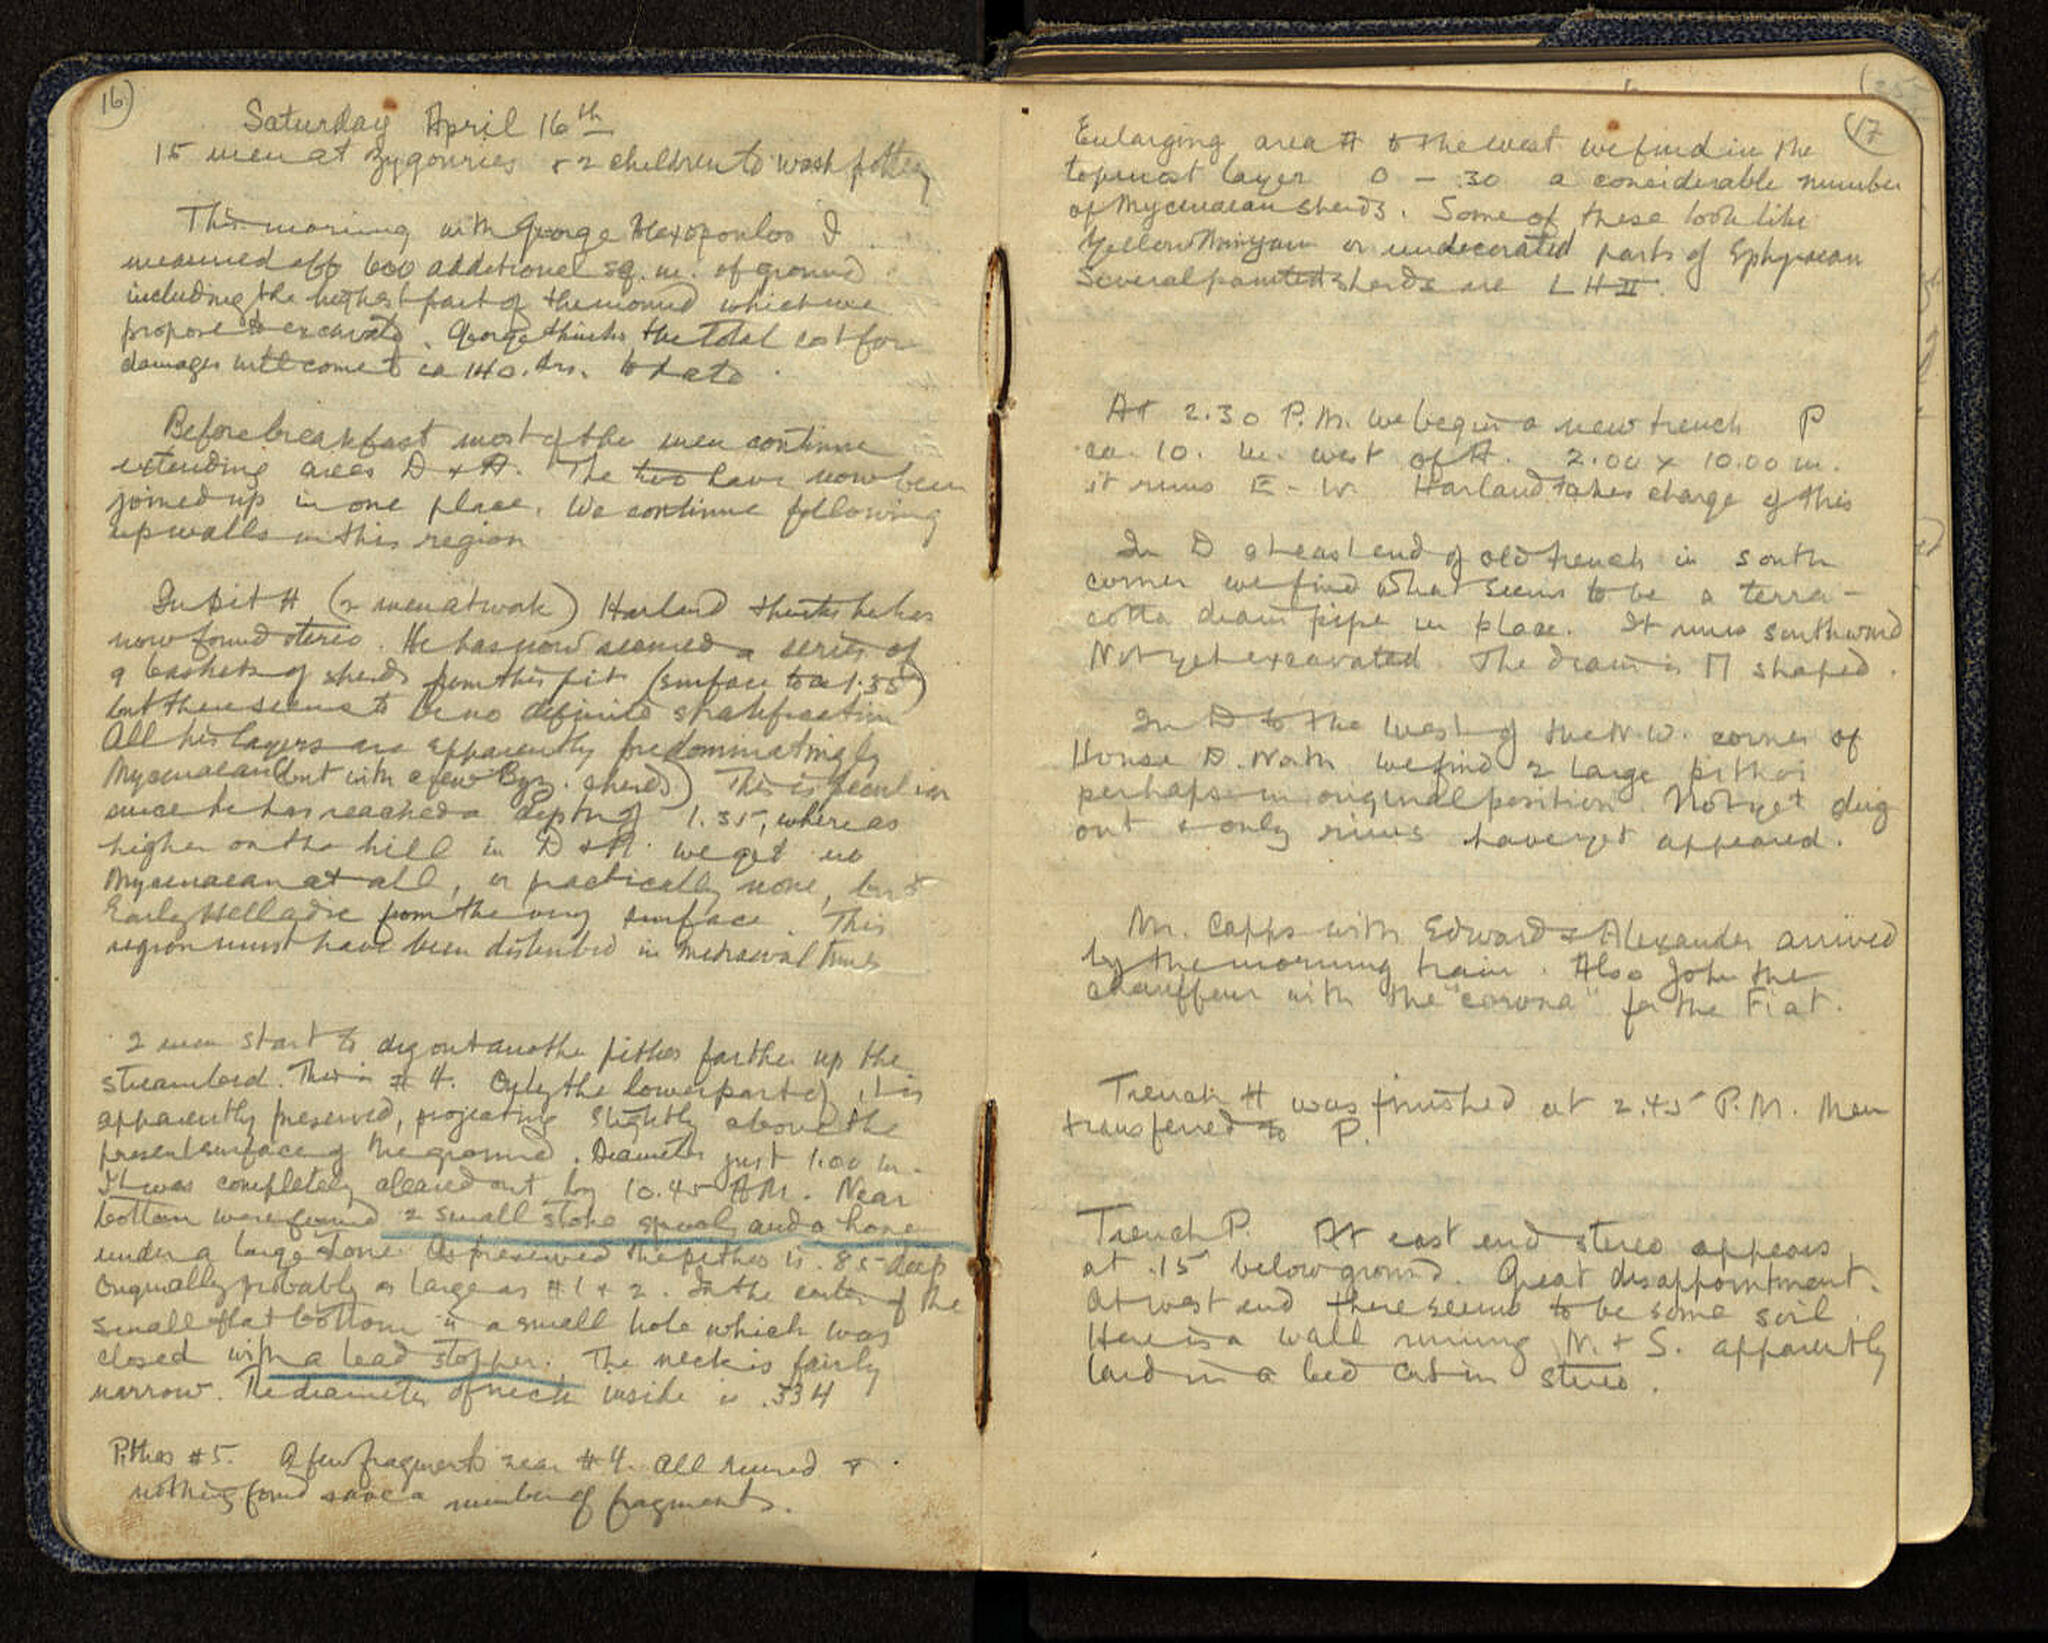 16
Saturday April 16th
15 men at Zygouries & 2 children to wash pottery
This morning with George Alexopoulos I
measured off 600 additional sq. m. of ground
including the highest part of the mound which we
propose to excavate. George thinks the total cost for
damages will come to ca 140. drs. to date.
Before breakfast most of the men continue
extending areas D & A. The two have now been
joined up in one place. We continue following
up walls in this region
In pit H (2 men at work) Harland thinks he has
now found stereo. He has now secured a series of
9 baskets of sherds from this pit (surface to 1.35)
but there seems to be no definite stratification
All his layers are apparently predominatingly
Mycenaean (but with a few Byz. sherds) This is peculiar
since he has reached a depth of 1.35, whereas
higher on the hill in D & A. we get no
Mycenaean at all, or practically none, but
Early Helladic from the very surface. This
region must have been disturbed in mediaeval times
2 men start to dig out another pithos farther up the
streambed. This is #4. Only the lower part of it is
apparently preserved, projecting slightly above the
present surface of the ground. Diameter just 1.00 m.
It was completely cleared out by 10.45 A.M. Near
bottom were found 2 small stone spools and a hone
under a large stone. As preserved the pithos is .85 deep
Originally probably as large as #1 & 2. In the center of the
small flat bottom is a small hole which was
closed with a lead stopper. The neck is fairly
narrow. The diameter of neck inside is .334
Pithos #5. A few fragments near #4. All ruined &
nothing found save a number of fragments.
17
Enlarging area A to the west we find in the
topmost layer 0 - .30 a considerable number
of Mycenaean sherds. Some of these look like
Yellow Minyan or undecorated parts of Ephyraean
Several painted sherds are LH II.
At 2.30 P.M. we begin a new trench P
ca. 10. m. west of A. 2.00 x 10.00 m.
it runs E - W. Harland takes charge of this
In D at east end of old trench in south
corner we find what seems to be a terra-
cotta drain pipe in place. It runs southward
Not yet excavated. The drain is Π shaped.
In D to the west of the N.W. corner of
House D. North we find 2 large pithoi
perhaps in original position. Not yet dug
out & only rims have yet appeared.
Mr. Capps with Edward & Alexander arrived
by the morning train. Also John the
chauffeur with the "corona" for the Fiat.
Trench H was finished at 2.45 P.M. Men
transferred to P.
Trench P. At east end stereo appears
at .15 below ground. Great disappointment.
At west end there seems to be some soil.
Here is a wall running N. & S. apparently
laid in a bed cut in stereo.